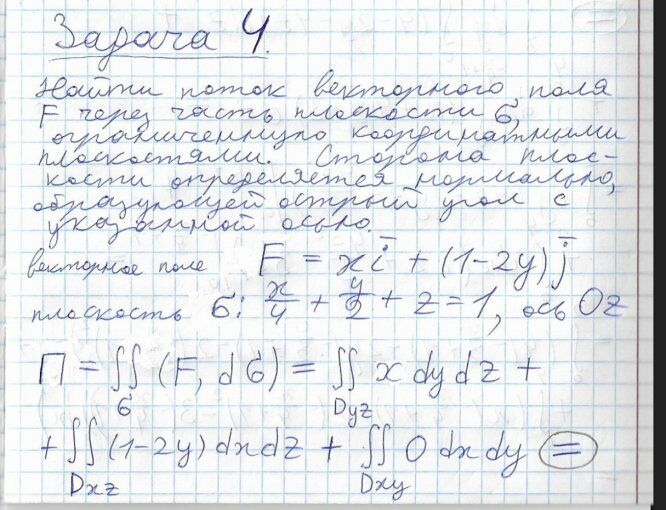 Задача 4.
Найти поток векторного поля
F через часть плоскости σ,
ограниченную координатными
плоскостями. Сторона плос-
кости определяется нормалью,
образующей острый угол с
указанной осью.
векторное поле F = xi̅ + (1-2y)j̅
плоскость σ: x/4 + y/2 + z = 1, ось Oz
П = ∬_σ (F, dσ) = ∬_Dyz x dy dz +
+ ∬_Dxz (1-2y) dx dz + ∬_Dxy 0 dx dy =